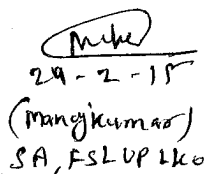 29-2-15
(Manojkumar)
SA, FSL UP LKO